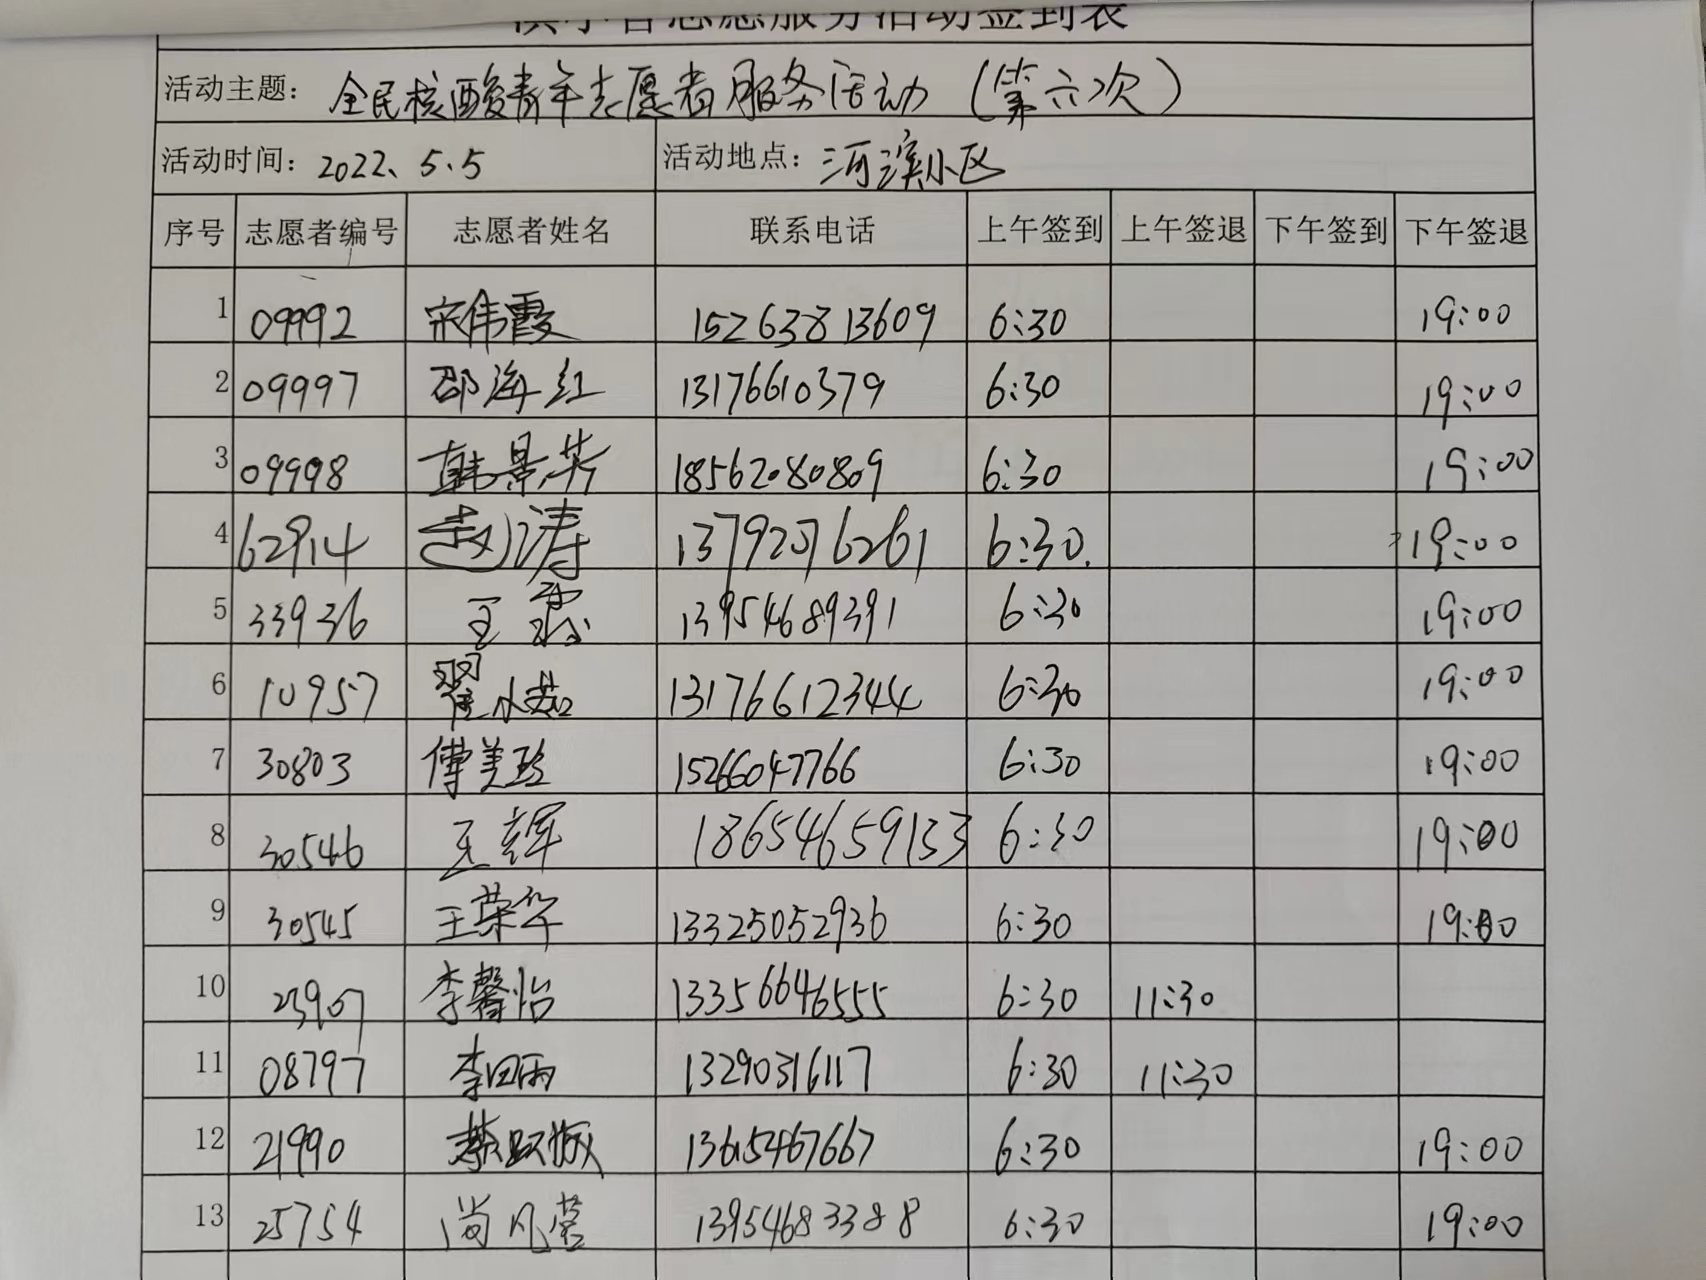 志愿服务活动签到表
活动主题: 全民核酸青年志愿者服务活动(第六次)
活动时间: 2022、5.5 活动地点: 河滨小区
序号 志愿者编号 志愿者姓名 联系电话 上午签到 上午签退 下午签到 下午签退
1 09992 宋伟霞 15263813609 6:30 19:00
2 09997 邵海红 13176610379 6:30 19:00
3 09998 韩景芳 18562080809 6:30 19:00
4 62914 赵涛 13792076261 6:30. 19:00
5 33936 王磊 13954689391 6:30 19:00
6 10957 翟小茹 13176612344 6:30 19:00
7 30803 傅美玲 15266047766 6:30 19:00
8 30546 王辉 18654659133 6:30 19:00
9 30545 王荣华 13325052936 6:30 19:00
10 23907 李馨怡 13356646555 6:30 11:30
11 08797 李雨 13290316117 6:30 11:30
12 21990 13615467667 6:30 19:00
13 25754 尚凡营 13954683388 6:30 19:00